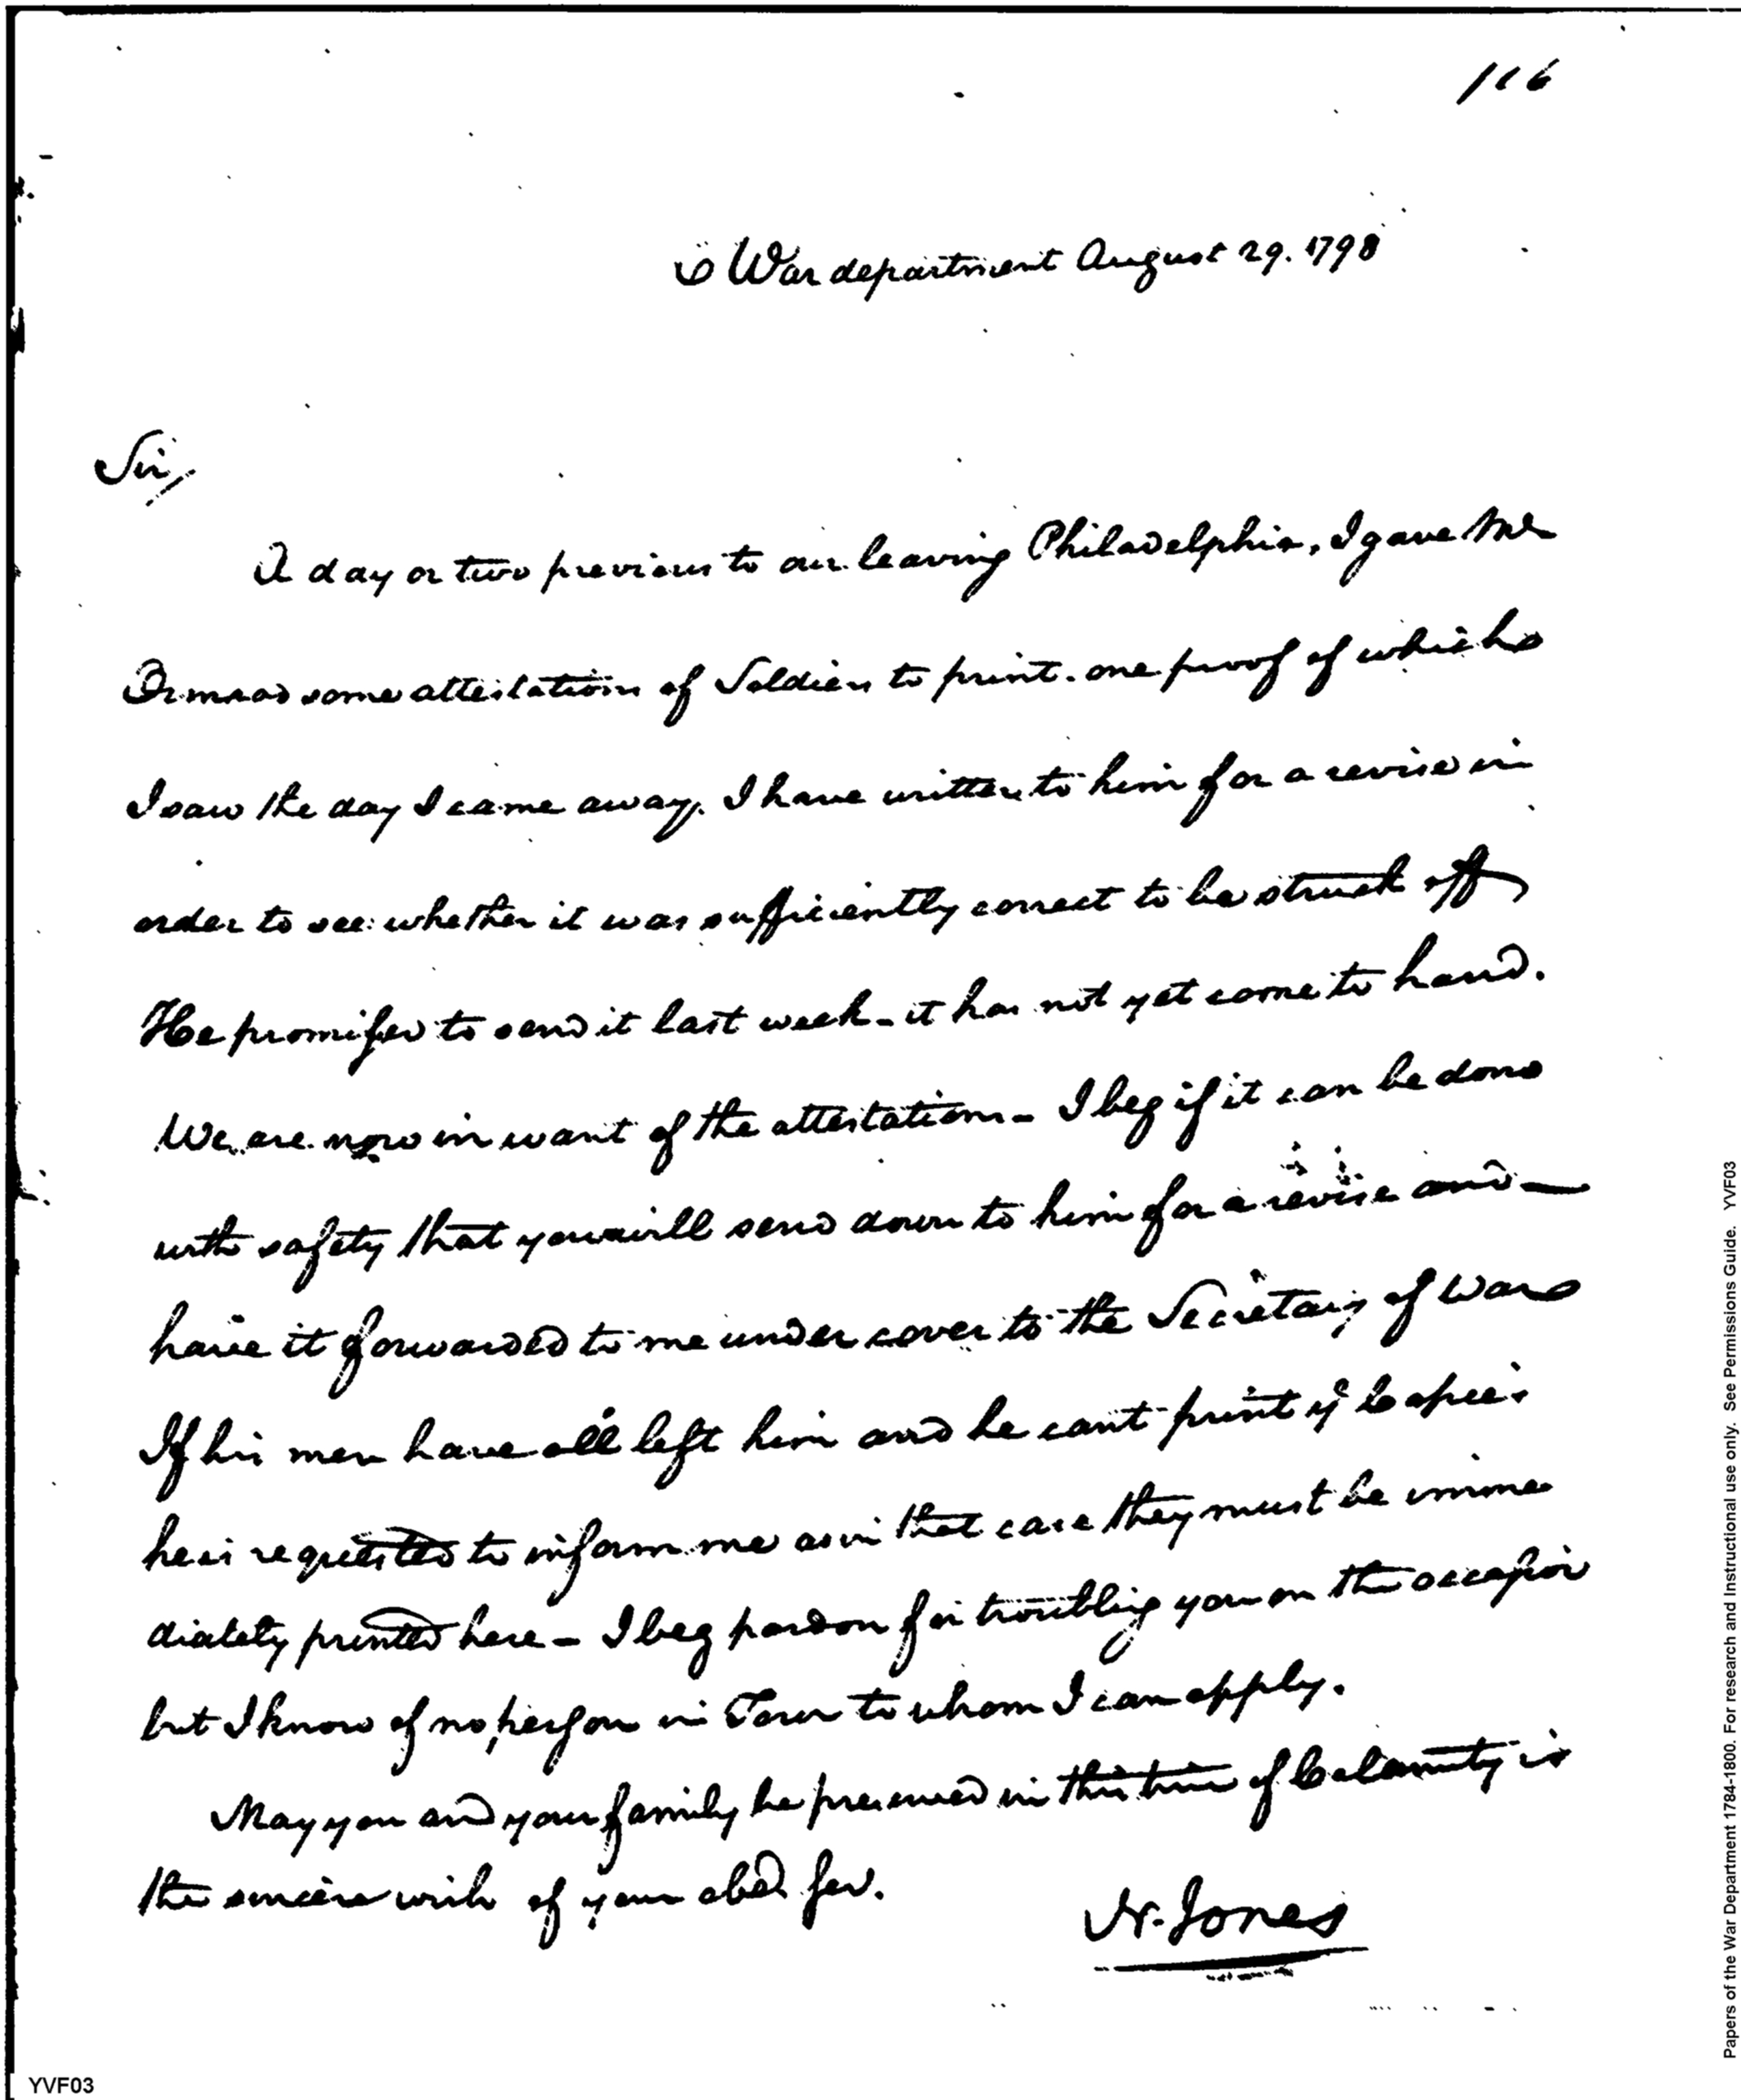 116
War department August 29. 1798
Sir,
A day or two previous to our leaving Philadelphia, I gave Mr
Ormrod some attestations of Soldiers to print. one proof of which
I saw the day I came away. I have written to him for a revise in
order to see whether it was sufficiently correct to be struck off
He promised to send it last week - it has not yet come to hand.
We are now in want of the attestations - I beg if it can be done
with safety that you will send down to him for a revise and —
have it forwarded to me under cover to the Secretary of War
If his men have all left him and he cant print ye Copies
he is requested to inform me as in that case they must be imme
diately printed here - I beg pardon for troubling you on the occasion
but I know of no person in Town to whom I can apply.
May you and your family be preserved in this time of Calamity is
the sincere wish of your obed. ser.
N. Jones
YVF03
Papers of the War Department 1784-1800. For research and Instructional use only. See Permissions Guide. YVF03